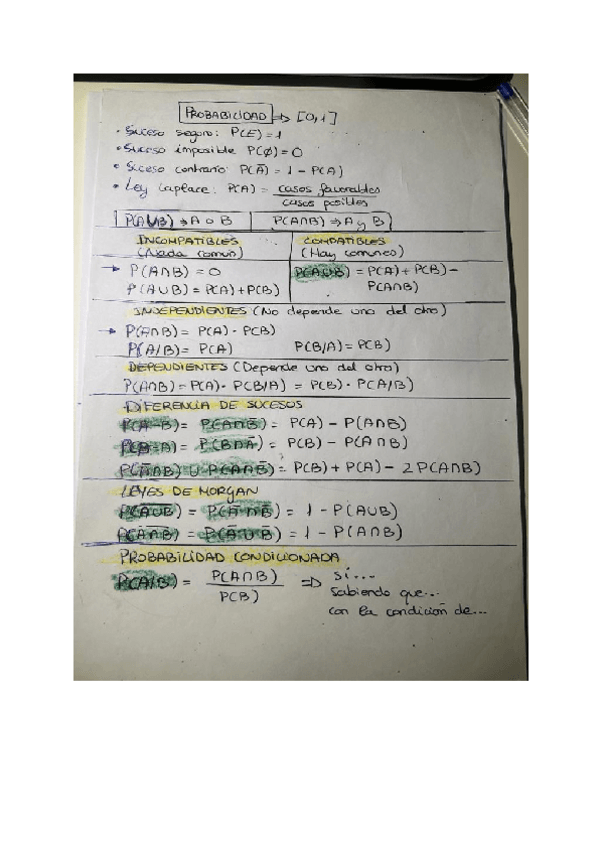 PROBABILIDAD ⇒ [0,1]
• Suceso seguro: P(E) = 1
• Suceso imposible P(∅) = 0
• Suceso contrario: P(A̅) = 1 - P(A)
• Ley Laplace: P(A) = casos favorables / casos posibles
P(A∪B) ⇒ A o B | P(A∩B) ⇒ A y B
INCOMPATIBLES
(Nada común)
→ P(A∩B) = 0
P(A∪B) = P(A) + P(B)
COMPATIBLES
(Hay comunes)
P(A∪B) = P(A) + P(B) -
P(A∩B)
INDEPENDIENTES (No depende uno del otro)
→ P(A∩B) = P(A) · P(B)
P(A/B) = P(A) P(B/A) = P(B)
DEPENDIENTES (Depende uno del otro)
P(A∩B) = P(A) · P(B/A) = P(B) · P(A/B)
DIFERENCIA DE SUCESOS
P(A-B) = P(A∩B̅) = P(A) - P(A∩B)
P(B-A) = P(B∩A̅) = P(B) - P(A∩B)
P(A̅∩B) ∪ P(A∩B̅) = P(B) + P(A) - 2P(A∩B)
LEYES DE MORGAN
P(A̅∪̅B̅) = P(A̅∩B̅) = 1 - P(A∪B)
P(A̅∩̅B̅) = P(A̅∪B̅) = 1 - P(A∩B)
PROBABILIDAD CONDICIONADA
P(A/B) = P(A∩B) / P(B) ⇒ Si...
Sabiendo que...
con la condición de...